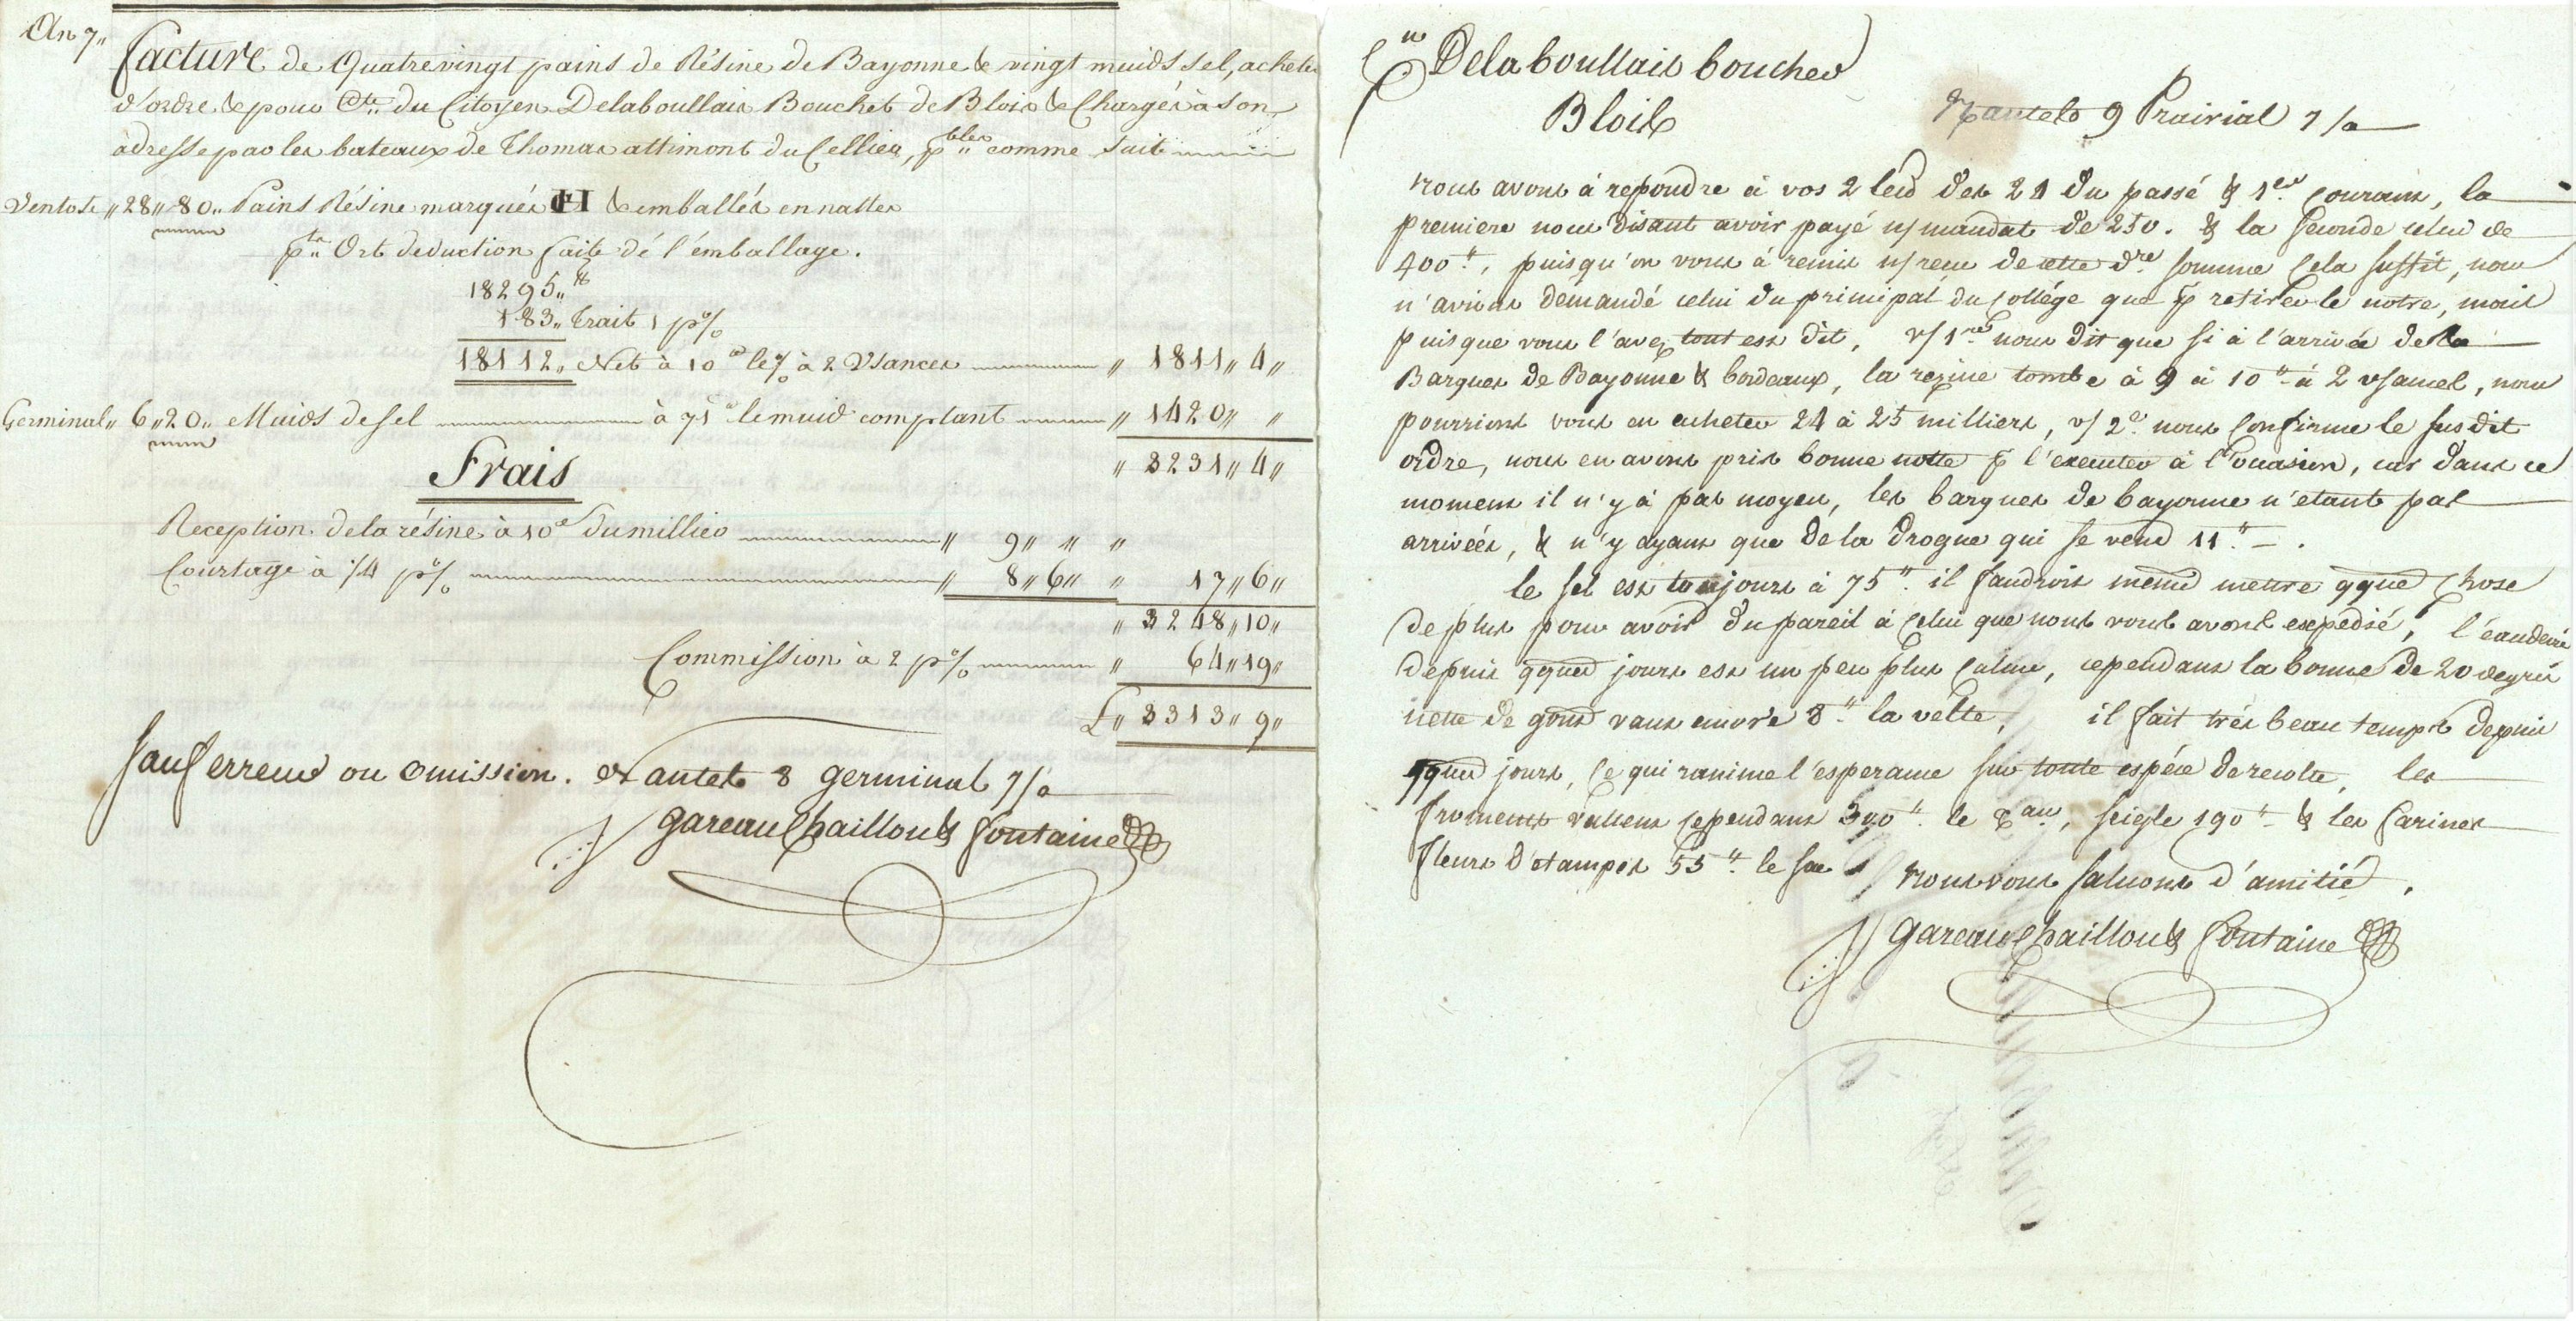 An 7,,
Facture de Quatrevingt pains de Résine de Bayonne & vingt muids sel, achetés
d'ordre & pour Cte. du Citoyen Delaboullais Bouchet de Blois & Chargés à son
adresse par les bateaux de Thomas attimont du Cellier, comme Suit
Ventose ,, 28 ,, 80 ,, Pains Résine marqués & emballés en nattes
pt. Ort deduction faite dé l'émballage.
18295 ,, lb
183 ,, Trait 1 p%
18112 ,, Net à 10 lt le % à 2 Usances ,, 1811 ,, 4 ,,
Germinal ,, 6 ,, 20 ,, Muids de sel à 71 lt le muid comptant ,, 1420 ,, ,,
,, 3231 ,, 4 ,,
Frais
Reception de la résine à 10 s du millier ,, 9 ,, ,, ,,
Courtage à 1/4 p% ,, 8 ,, 6 ,, ,, 17 ,, 6 ,,
,, 3248 ,, 10 ,,
Commission à 2 p% ,, 64 ,, 19 ,,
L ,, 3313 ,, 9 ,,
Sauf erreur ou omission. Nantes 8 germinal 7/a
gareau Chaillou & fontaine
Cn Delaboullais bouchet
Blois
Nantes 9 Prairial 7/a
nous avons à repondre à vos 2 des 21 du passé & 1er Courant, la
premiere nous disant avoir payé n/ mandat de 250. & la Seconde celui de
400 lt, puisqu'on vous à remis n/ recu de cette dre somme Cela suffit, nous
n'avions demandé celui du principal du Collége que p retirer le notre, mais
puisque vous l'avez tout est dit, v/ 1re nous dit que si à l'arrivée de la
Barques de Bayonne & bordeaux, la rezine tombe à 9 à 10 lt à 2 usances, nous
pourrions vous en acheter 24 à 25 milliers, v/ 2e nous Confirme le susdit
ordre, nous en avons pris bonne notte p l'executer à l'occasion, car dans ce
moment il n'y à pas moyen, les barques de bayonne n'etant pas
arrivées, & n'y ayant que de la drogue qui se vend 11 lt.
le sel est toujours à 75 lt. il faudroit meme mettre qque Chose
de plus pour avoir du pareil à Celui que nous vous avons expedié, l'eaudevie
depuis qques jours est un peu plus Calme, cependant la bonne de 20 degrés
nette de gout vaut encore 8 lt la velte, il fait trés beau temps depuis
qques jours, Ce qui ranime l'esperance sur toute espéce de recolte, les
froments valent cependant 300 lt le Tau, seigle 190 lt & les farines
fleurs d'etampes 55 lt le sac nous vous saluons d'amitié.
gareau Chaillou & fontaine